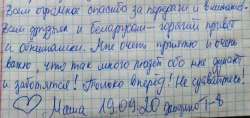 Вам огромное спасибо за передачи и внимание.
Всем друзьям и беларусам – горячий привет
и обнимашки. Мне очень приятно и очень
важно что так много людей обо мне думают
и заботятся! Только вперёд! Не сдавайтесь!
Маша 19.09.20 1-8